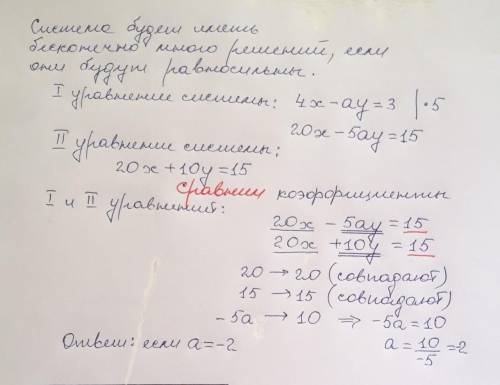 Система будет иметь
бесконечно много решений, если
они будут равносильны.
I уравнение системы: 4x - ay = 3 | ·5
20x - 5ay = 15
II уравнение системы:
20x + 10y = 15
Сравним коэффициенты
I и II уравнений:
20x - 5ay = 15
20x + 10y = 15
20 → 20 (совпадают)
15 → 15 (совпадают)
-5a → 10 ⇒ -5a = 10
Ответ: если a = -2
a = 10/-5 = -2